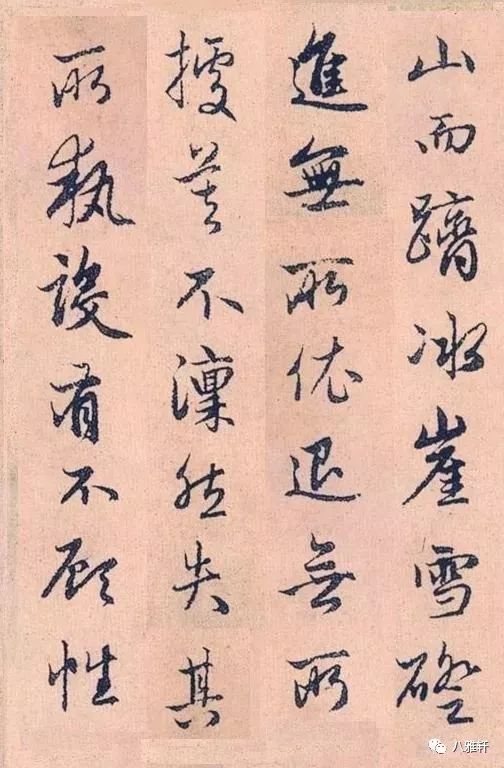 山而躋冰崖雪磴
進無所依退無所
據莫不凜然失其
所執設有不顧性
八雅轩